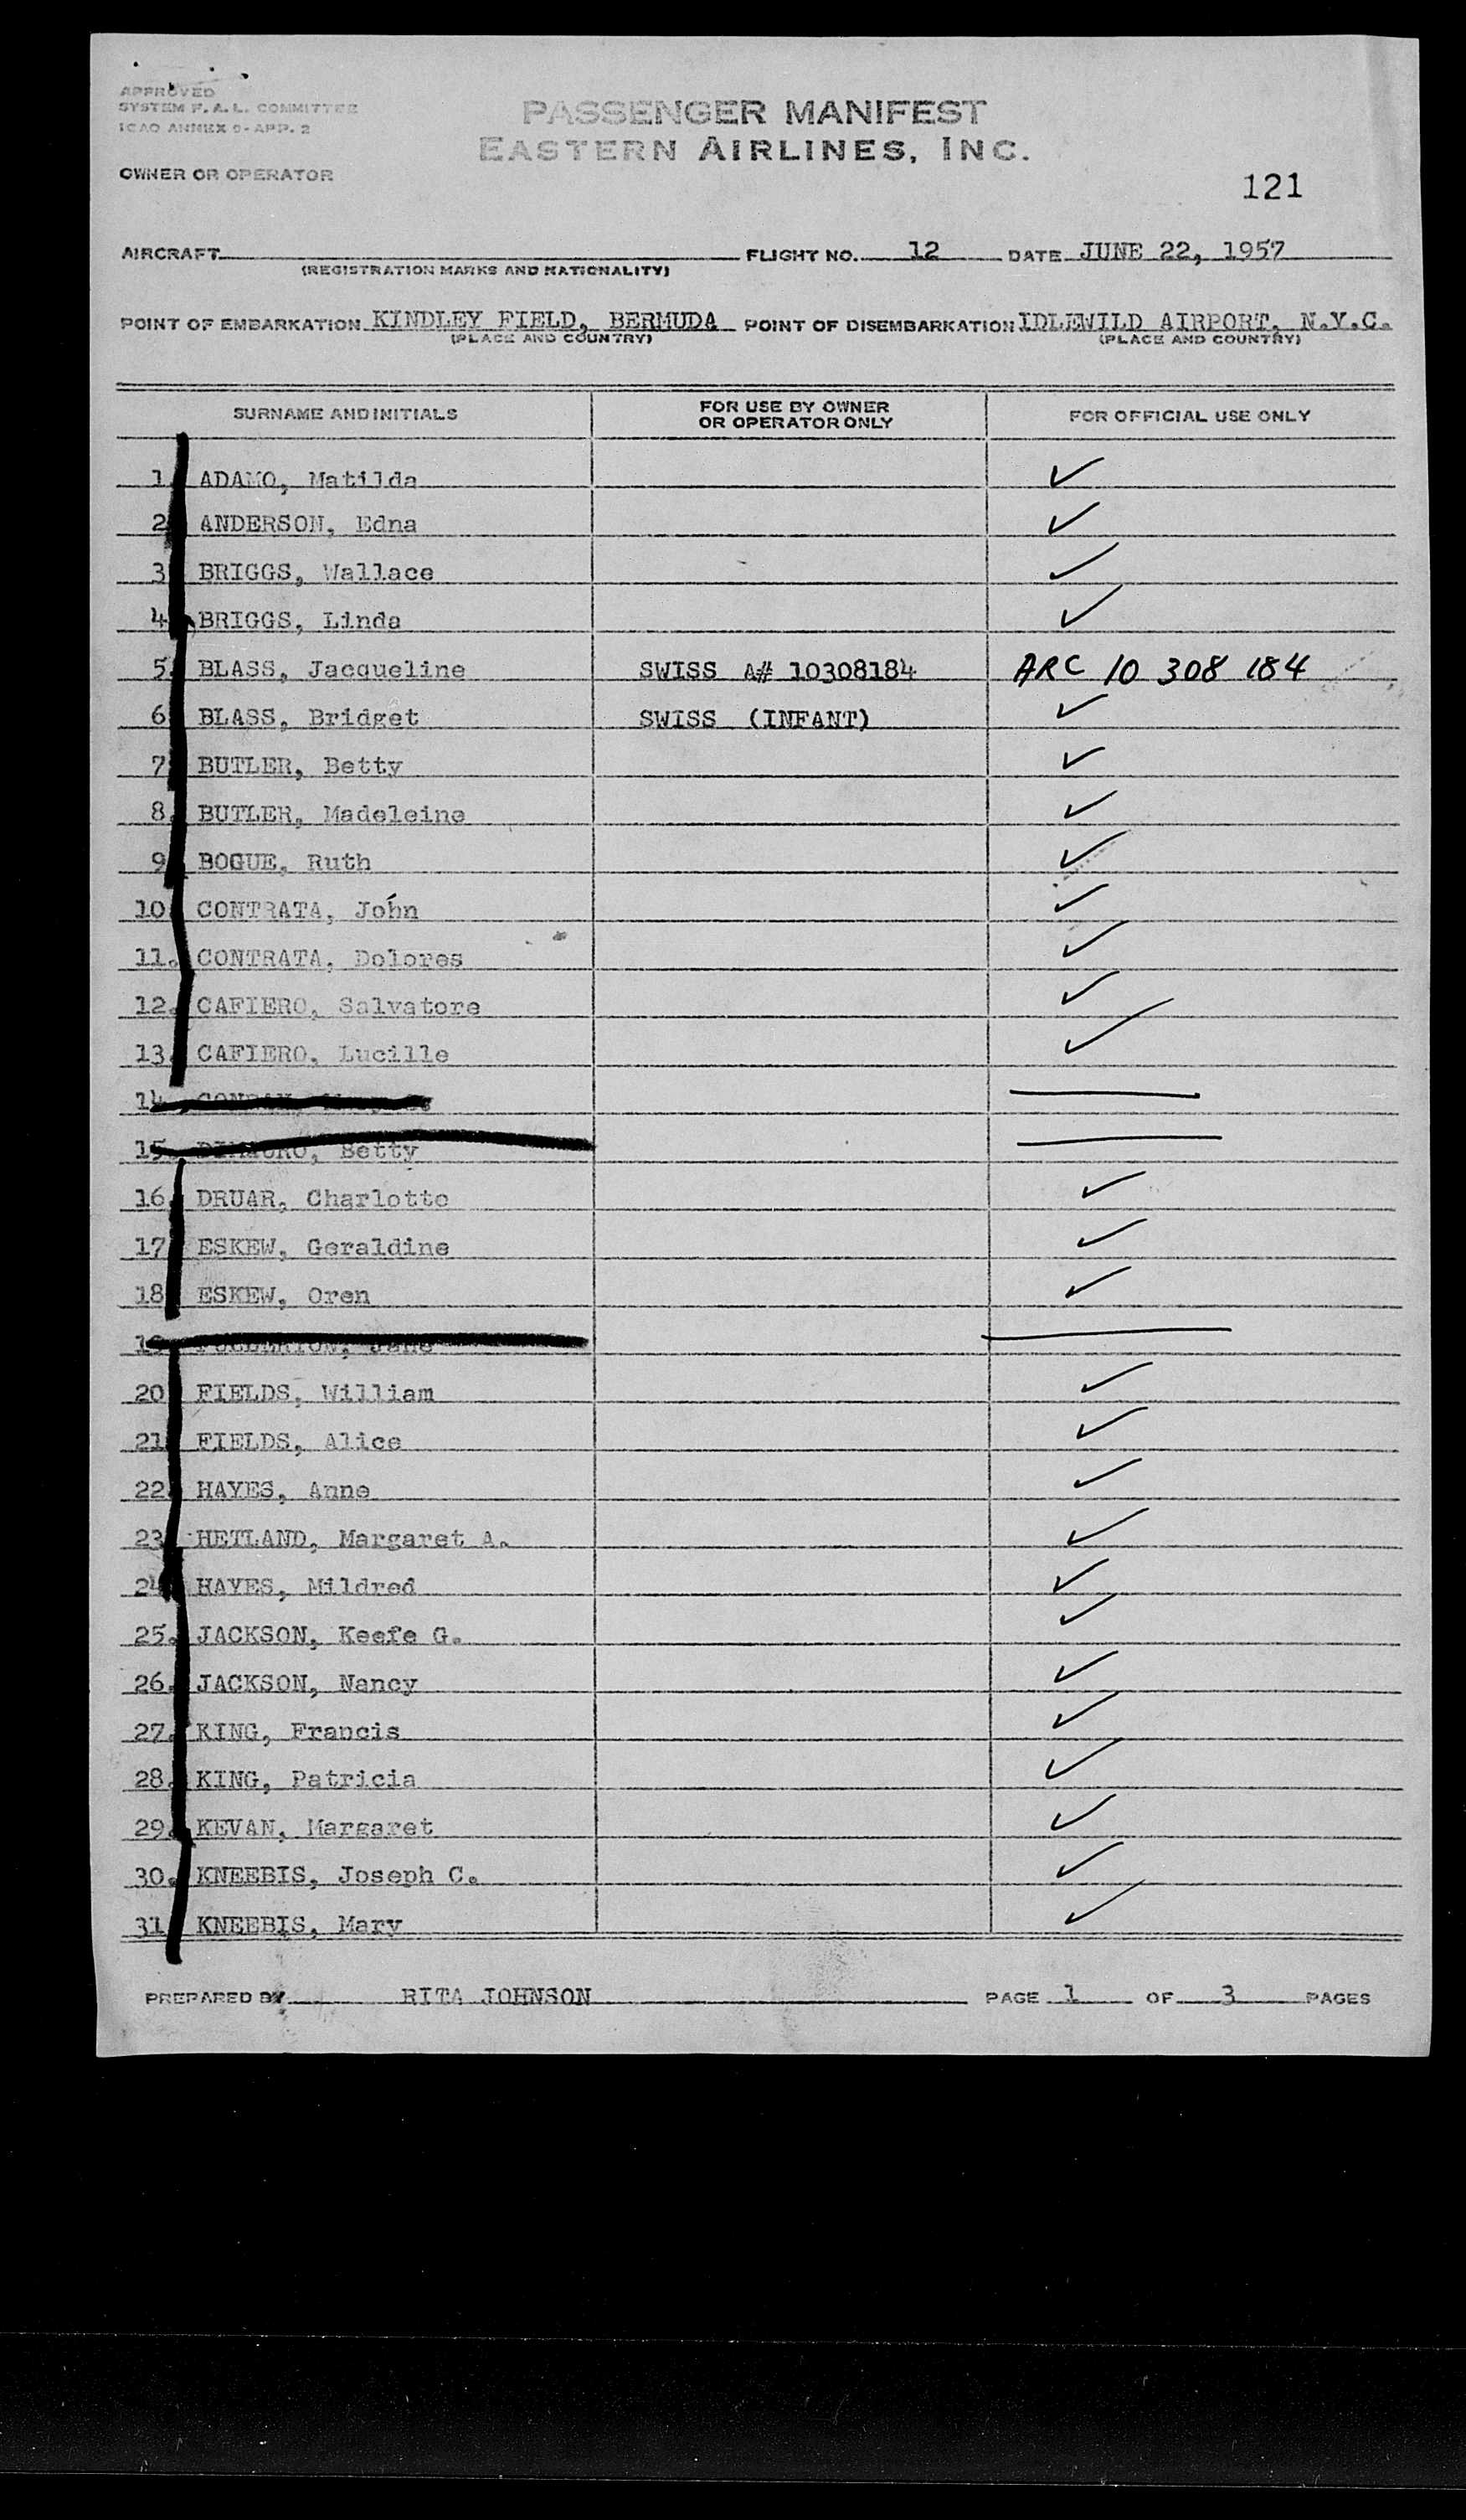 APPROVED
SYSTEM F. A. L. COMMITTEE
ICAO ANNEX 9 - APP. 2
PASSENGER MANIFEST
EASTERN AIRLINES, INC.
OWNER OR OPERATOR
121
AIRCRAFT FLIGHT NO. 12 DATE JUNE 22, 1957
(REGISTRATION MARKS AND NATIONALITY)
POINT OF EMBARKATION KINDLEY FIELD, BERMUDA POINT OF DISEMBARKATION IDLEWILD AIRPORT, N.Y.C.
(PLACE AND COUNTRY) (PLACE AND COUNTRY)
SURNAME AND INITIALS FOR USE BY OWNER OR OPERATOR ONLY FOR OFFICIAL USE ONLY
1. ADAMO, Matilda ✓
2. ANDERSON, Edna ✓
3. BRIGGS, Wallace ✓
4. BRIGGS, Linda ✓
5. BLASS, Jacqueline SWISS A# 10308184 ARC 10 308 184
6. BLASS, Bridget SWISS (INFANT) ✓
7. BUTLER, Betty ✓
8. BUTLER, Madeleine ✓
9. BOGUE, Ruth ✓
10. CONTRATA, John ✓
11. CONTRATA, Dolores ✓
12. CAFIERO, Salvatore ✓
13. CAFIERO, Lucille ✓
14.
15. Betty
16. DRUAR, Charlotte ✓
17. ESKEW, Geraldine ✓
18. ESKEW, Oren ✓
19.
20. FIELDS, William ✓
21. FIELDS, Alice ✓
22. HAYES, Anne ✓
23. HETLAND, Margaret A. ✓
24. HAYES, Mildred ✓
25. JACKSON, Keefe G. ✓
26. JACKSON, Nancy ✓
27. KING, Francis ✓
28. KING, Patricia ✓
29. KEVAN, Margaret ✓
30. KNEEBIS, Joseph C. ✓
31. KNEEBIS, Mary ✓
PREPARED BY RITA JOHNSON PAGE 1 OF 3 PAGES